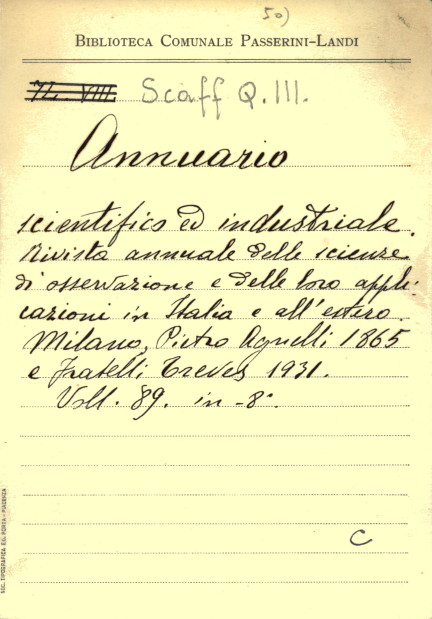 50)
BIBLIOTECA COMUNALE PASSERINI-LANDI
72. VIII Scaff Q. III.
Annuario
scientifico ed industriale.
Rivista annuale delle scienze
di osservazione e delle loro appli-
cazioni in Italia e all'estero.
Milano, Pietro Agnelli 1865
e Fratelli Treves 1931.
Voll. 89. in -8°.
C
SOC. TIPOGRAFICA ED. PORTA - PIACENZA